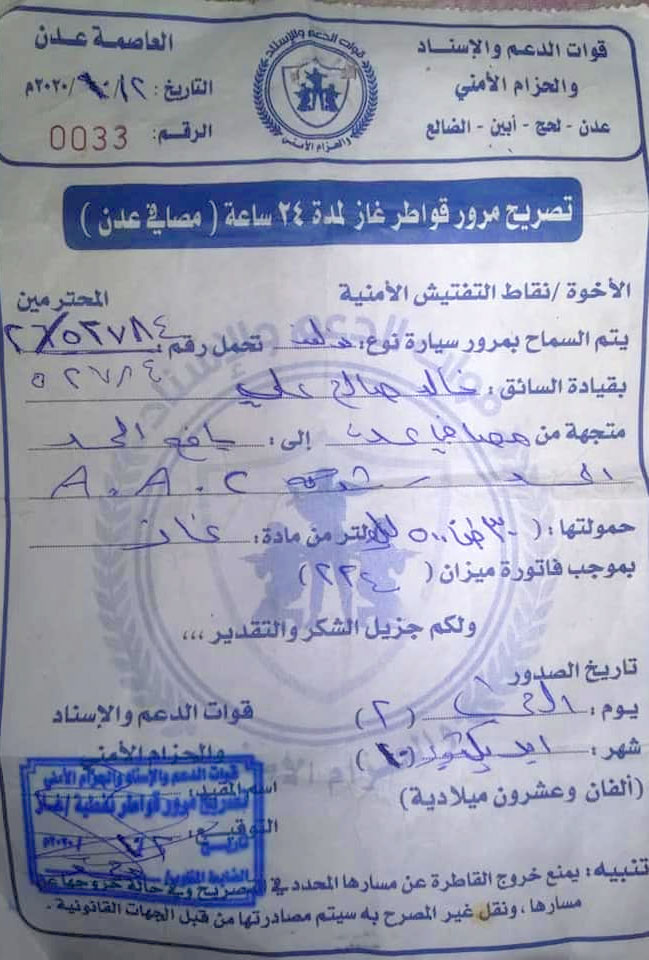 قوات الدعم والإسناد
والحزام الأمني
عدن - لحج - أبين - الضالع
قوات الدعم والإسناد
والحزام الأمني
العاصمة عدن
التاريخ: ٢ / ١٠ / ٢٠٢٠م
الرقم: 0033
تصريح مرور قواطر غاز لمدة ٢٤ ساعة ( مصافي عدن )
الأخوة / نقاط التفتيش الأمنية المحترمين
يتم السماح بمرور سيارة نوع: تحمل رقم: ٢٦/٥٢٧٨٤
بقيادة السائق: خالد صالح علي ٥٢٧٨٤
متجهة من مصافي عدن إلى: يافع الحد
الحد - شركة A.A.C
حمولتها: ( ٣٠ طن ٥٠٠ لتر من مادة: غاز
بموجب فاتورة ميزان ( ٢٢٤ )
ولكم جزيل الشكر والتقدير ,,,
تاريخ الصدور
يوم: ( ٢ )
شهر: ( ١٠ )
(ألفان وعشرون ميلادية)
قوات الدعم والإسناد
والحزام الأمني
اسم المقيد:
التوقيع:
قوات الدعم والإسناد والحزام الأمني
تصريح مرور قواطر نفطية / غاز
تاريخ / ٢٠٢٠م
تنبيه: يمنع خروج القاطرة عن مسارها المحدد في التصريح وفي حالة خروجها عن
مسارها ، ونقل غير المصرح به سيتم مصادرتها من قبل الجهات القانونية .